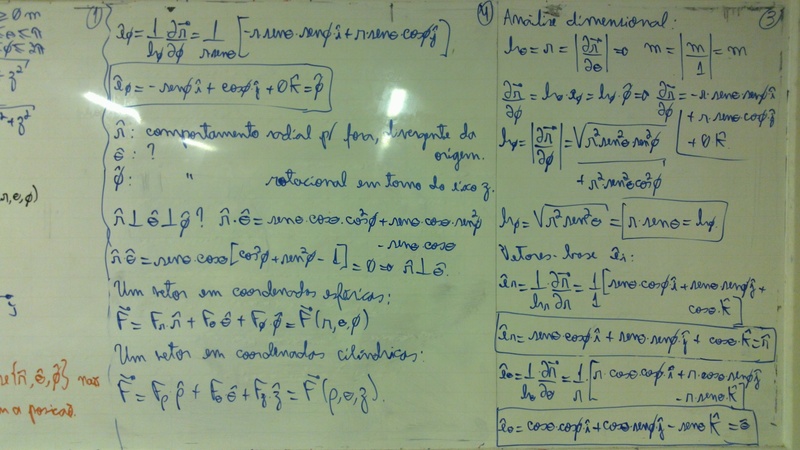 ≥ 0 m
z²
(r, θ, φ)
{r̂, θ̂, φ̂}
a posição.
(4)
ê_φ = 1/l_φ ∂r⃗/∂φ = 1/(r senθ) [-r senθ·senφ î + r senθ cosφ ĵ]
ê_φ = -senφ î + cosφ ĵ + 0 k̂ = φ̂
r̂: comportamento radial p/ fora, divergente da origem.
θ̂: ?
φ̂: " rotacional em torno do eixo z.
r̂ ⊥ θ̂ ⊥ φ̂? r̂·θ̂ = senθ·cosθ·cos²φ + senθ·cosθ·sen²φ
- senθ cosθ
r̂·θ̂ = senθ·cosθ [cos²φ + sen²φ - 1] = 0 ⇒ r̂ ⊥ θ̂.
Um vetor em coordenadas esféricas:
F⃗ = F_r r̂ + F_θ θ̂ + F_φ φ̂ = F⃗(r, θ, φ)
Um vetor em coordenadas cilíndricas:
F⃗ = F_ρ ρ̂ + F_θ θ̂ + F_z ẑ = F⃗(ρ, θ, z).
(3)
Análise dimensional:
l_θ = r = |∂r⃗/∂θ| ⇒ m = |m/1| = m
∂r⃗/∂φ = l_φ·ê_φ = l_φ·φ̂ ⇒ ∂r⃗/∂φ = -r·senθ·senφ î
+ r·senθ cosφ ĵ
+ 0 k̂
l_φ = |∂r⃗/∂φ| = √(r² sen²θ sen²φ
+ r² sen²θ cos²φ)
l_φ = √(r² sen²θ) = r·senθ = l_φ.
Vetores-base ê_i:
ê_r = 1/l_r · ∂r⃗/∂r = 1/1 [senθ·cosφ î + senθ senφ ĵ +
cosθ·k̂]
ê_r = senθ·cosφ î + senθ·senφ ĵ + cosθ·k̂ = r̂
ê_θ = 1/l_θ ∂r⃗/∂θ = 1/r · [r·cosθ·cosφ î + r·cosθ·senφ ĵ
- r·senθ k̂]
ê_θ = cosθ·cosφ î + cosθ·senφ ĵ - senθ k̂ = θ̂